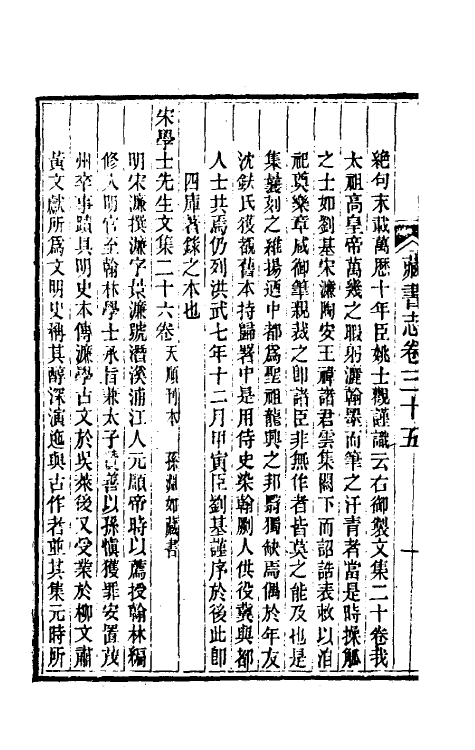 藏書志卷三十五
一
絕句末載萬歷十年臣姚士觀謹識云右御製文集二十卷我
太祖高皇帝萬幾之暇躬灑翰墨而筆之汗青者當是時操觚
之士如劉基宋濂陶安王禕諸君雲集闕下而詔誥表敕以洎
祀奠樂章咸御筆親裁之卽諸臣非無作者皆莫之能及也是
集曩刻之維揚迺中都為聖祖龍興之邦翳獨缺焉偶於年友
沈鈇氏獲覩舊本持歸署中是用侍史染翰劂人供役冀與都
人士共焉仍列洪武七年十二月甲寅臣劉基謹序於後此卽
四庫著錄之本也
宋學士先生文集二十六卷 天順刊本 孫淵如藏書
明宋濂撰濂字景濂號潛溪浦江人元順帝時以薦授翰林編
修入明官至翰林學士承旨兼太子贊善以孫愼獲罪安置茂
州卒事蹟具明史本傳濂學古文於吳萊後又受業於柳文肅
黃文獻所為文明史稱其醇深演迤與古作者並其集元時所